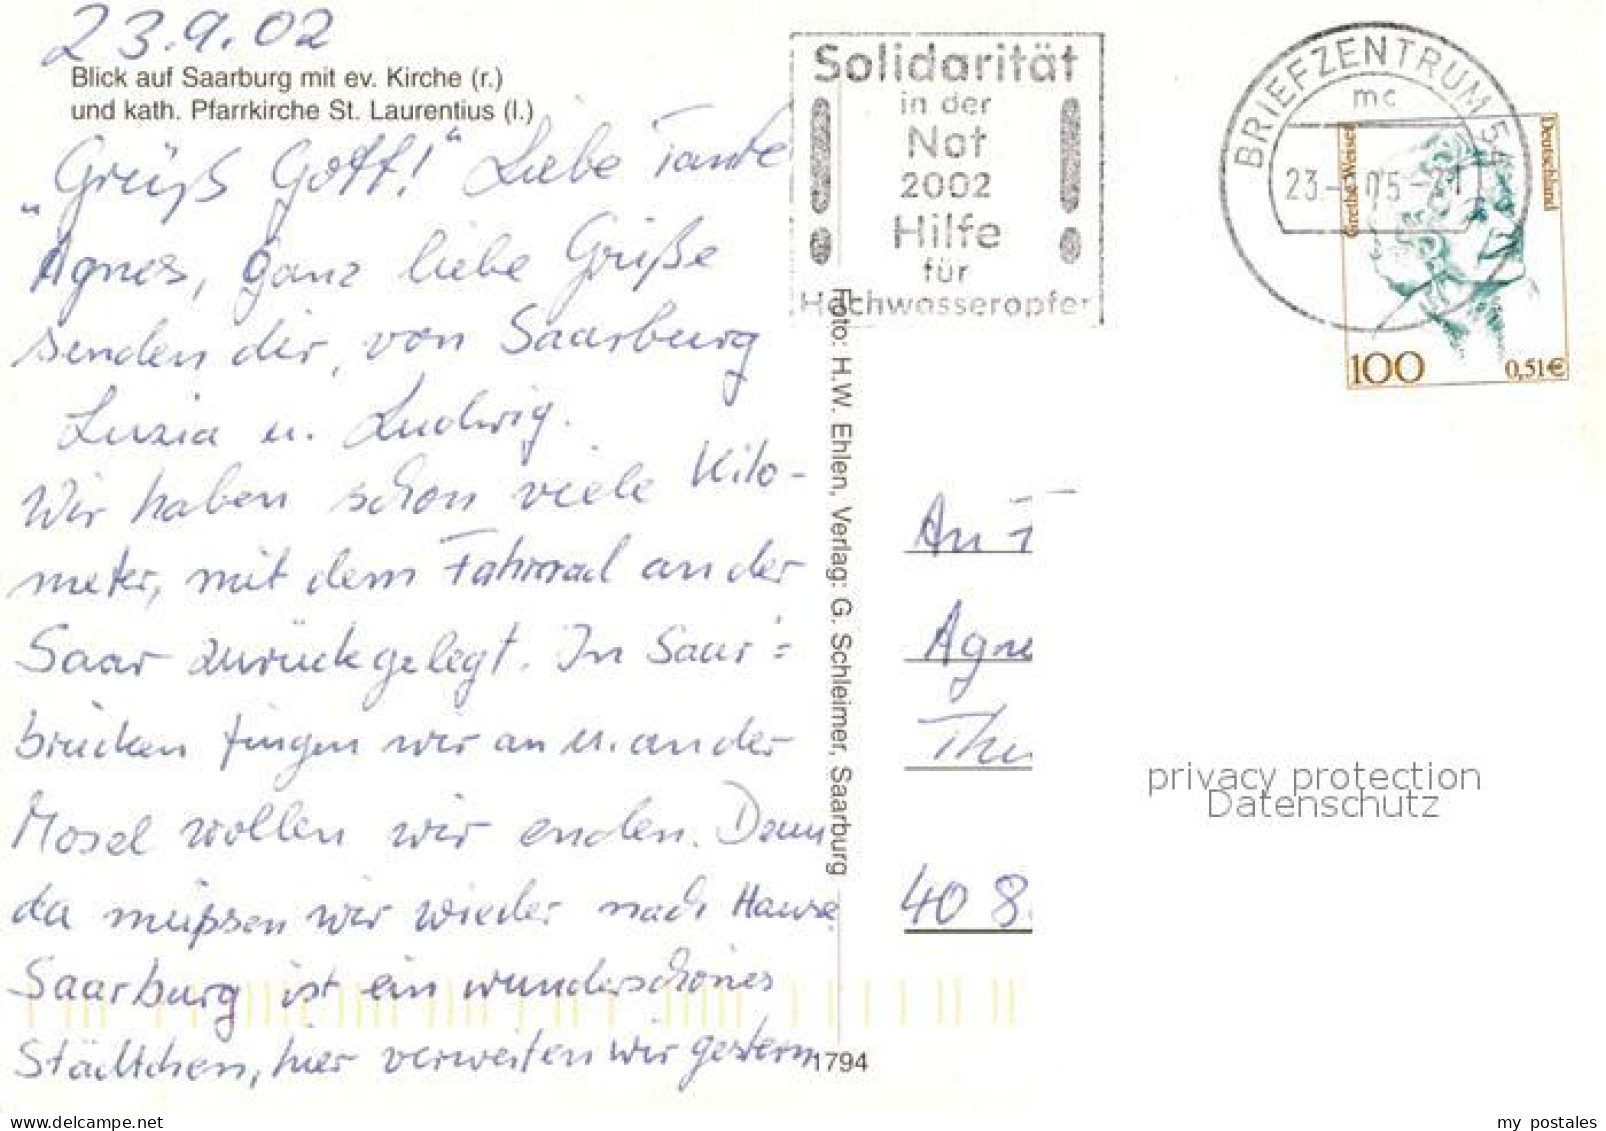 23.9.02
Blick auf Saarburg mit ev. Kirche (r.)
und kath. Pfarrkirche St. Laurentius (l.)
„Grüß Gott!“ Liebe Tante
Agnes, ganz liebe Grüße
senden dir, von Saarburg
Luzia u. Ludwig.
Wir haben schon viele Kilo-
meter, mit dem Fahrrad an der
Saar zurückgelegt. In Saar=
brücken fingen wir an u. an der
Mosel wollen wir enden. Dann
da müßsen wir wieder nach Hause.
Saarburg ist ein wunderschönes
Städtchen, hier verweilten wir gestern
Foto: H.W. Ehlen, Verlag: G. Schleimer, Saarburg
1794
Solidarität
in der
Not
2002
Hilfe
für
Hochwasseropfer
BRIEFZENTRUM 54
mc
23.
Grethe Weiser
Deutschland
100
0,51€
An
Agne
Thu
40 8
privacy protection
Datenschutz
delcampe.net
my_postales